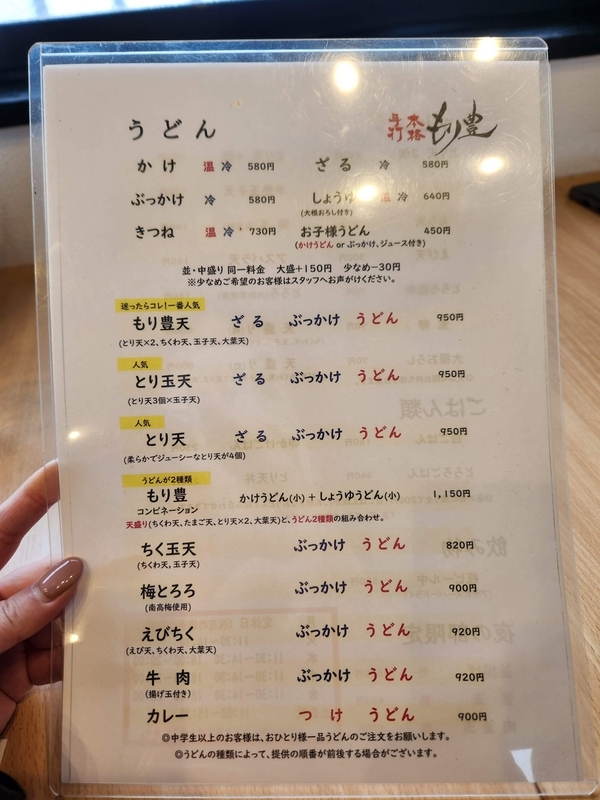 うどん
本格手打 もり豊
かけ 温 冷 580円 ざる 冷 580円
ぶっかけ 冷 580円 しょうゆ 温 冷 640円
(大根おろし付き)
きつね 温 冷 730円 お子様うどん 450円
(かけうどん or ぶっかけ、ジュース付き)
並・中盛り 同一料金 大盛+150円 少なめ−30円
※少なめご希望のお客様はスタッフへお声がけください。
迷ったらコレ!一番人気
もり豊天 ざる ぶっかけ うどん 950円
(とり天×2、ちくわ天、玉子天、大葉天)
人気
とり玉天 ざる ぶっかけ うどん 950円
(とり天3個×玉子天)
人気
とり天 ざる ぶっかけ うどん 950円
(柔らかでジューシーなとり天が4個)
うどんが2種類
もり豊 かけうどん(小) + しょうゆうどん(小) 1,150円
コンビネーション
天盛り(ちくわ天、たまご天、とり天×2、大葉天)と、うどん2種類の組み合わせ。
ちく玉天 ぶっかけ うどん 820円
(ちくわ天、玉子天)
梅とろろ ぶっかけ うどん 900円
(南高梅使用)
えびちく ぶっかけ うどん 920円
(えび天、ちくわ天、大葉天)
牛肉 ぶっかけ うどん 920円
(揚げ玉付き)
カレー つけ うどん 900円
◎中学生以上のお客様は、おひとり様一品うどんのご注文をお願いします。
◎うどんの種類によって、提供の順番が前後する場合がございます。